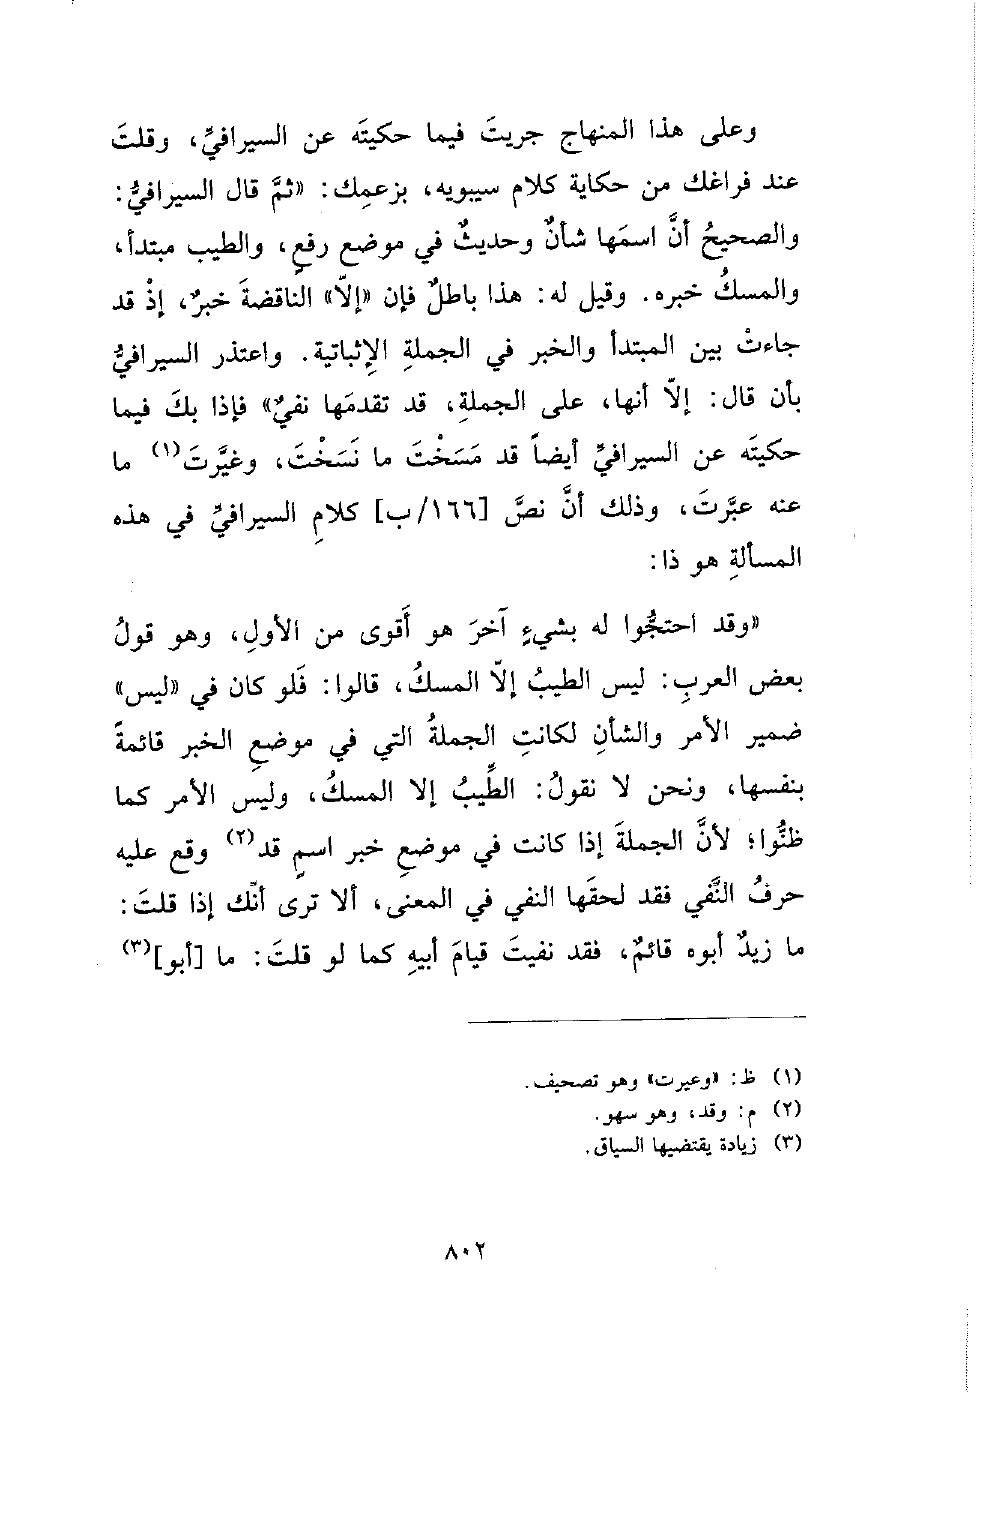 وعلى هذا المنهاج جريتَ فيما حكيتَه عن السيرافيِّ، وقلتَ
عند فراغك من حكاية كلام سيبويه، بزعمِك: «ثمَّ قال السيرافيُّ:
والصحيحُ أنَّ اسمَها شأنٌ وحديثٌ في موضع رفعٍ، والطيب مبتدأ،
والمسكُ خبره. وقيل له: هذا باطلٌ فإن «إلّا» الناقضةَ خبرٌ، إذْ قد
جاءتْ بين المبتدأ والخبر في الجملةِ الإِثباتية. واعتذر السيرافيُّ
بأن قال: إلّا أنها، على الجملةِ، قد تقدمَها نفيٌ» فإذا بكَ فيما
حكيتَه عن السيرافيِّ أيضاً قد مَسَخْتَ ما نَسَخْتَ، وغيَّرتَ(١) ما
عنه عبَّرتَ، وذلك أنَّ نصَّ [١٦٦/ب] كلامِ السيرافيِّ في هذه
المسألةِ هو ذا:
«وقد احتجُّوا له بشيءٍ آخرَ هو أَقوى من الأولِ، وهو قولُ
بعض العربِ: ليس الطيبُ إلّا المسكُ، قالوا: فَلو كان في «ليس»
ضمير الأمر والشأنِ لكانتِ الجملةُ التي في موضعِ الخبر قائمةً
بنفسها، ونحن لا نقولُ: الطِّيبُ إلا المسكُ، وليس الأمر كما
ظنُّوا؛ لأنَّ الجملةَ إذا كانت في موضعِ خبر اسمٍ قد(٢) وقع عليه
حرفُ النَّفي فقد لحقَها النفي في المعنى، ألا ترى أنّك إذا قلتَ:
ما زيدٌ أبوه قائمٌ، فقد نفيتَ قيامَ أبيهِ كما لو قلتَ: ما [أبو](٣)
(١) ظ: «وعيرت» وهو تصحيف.
(٢) م: وقد، وهو سهو.
(٣) زيادة يقتضيها السياق.
٨٠٢